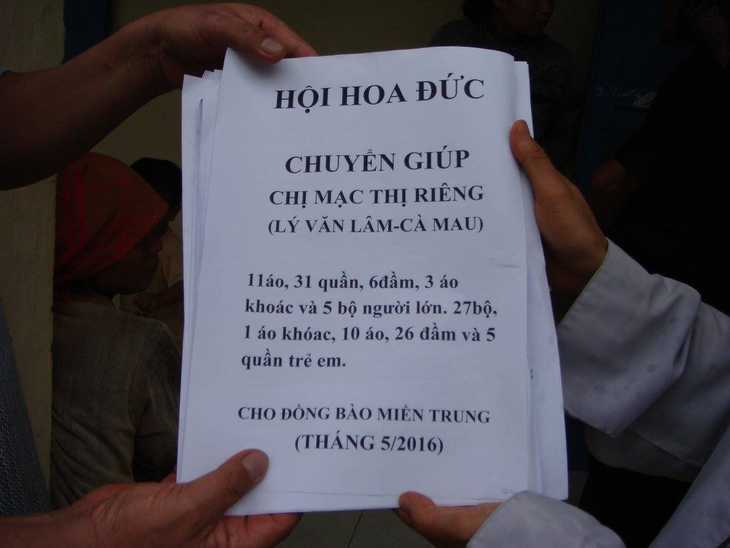 HỘI HOA ĐỨC
CHUYỂN GIÚP
CHỊ MẠC THỊ RIÊNG
(LÝ VĂN LÂM-CÀ MAU)
11áo, 31 quần, 6đầm, 3 áo
khoác và 5 bộ người lớn. 27bộ,
1 áo khóac, 10 áo, 26 đầm và 5
quần trẻ em.
CHO ĐỒNG BÀO MIỀN TRUNG
(THÁNG 5/2016)